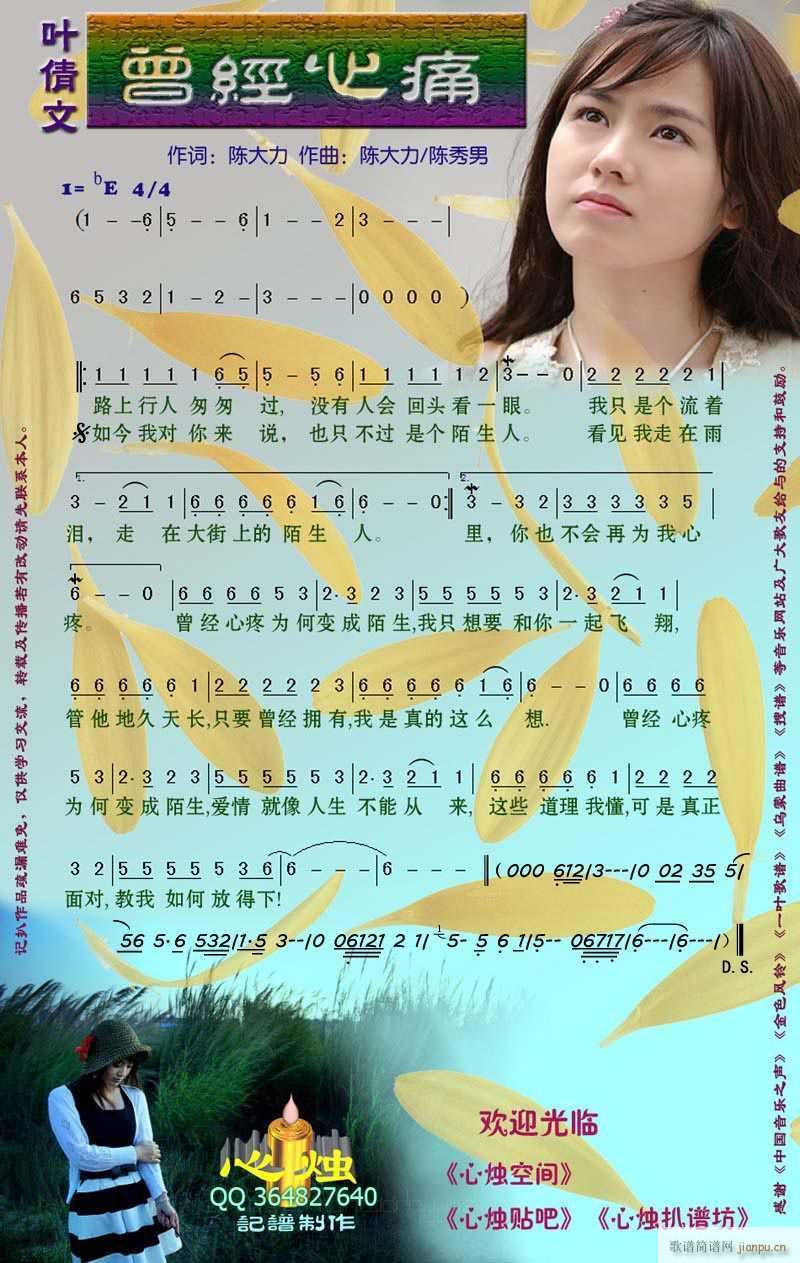 叶倩文
曾經心痛
作词：陈大力 作曲：陈大力/陈秀男
1= bE 4/4
(1 - - 6|5 - - 6|1 - - 2|3 - - -|
6 5 3 2|1 - 2 -|3 - - -|0 0 0 0 )
‖: 1 1 1 1 1 6 5|5 - 5 6|1 1 1 1 1 1 2|3 - - 0|2 2 2 2 2 1|
路上行人 匆匆 过, 没有人会 回头看一眼。 我只是个流着
如今我对 你来 说，也只不过 是个陌生人。 看见我走在雨
1. 2.
3 - 2 1 1|6 6 6 6 6 1 6|6 - - 0:‖3 - 3 2|3 3 3 3 3 5|
泪，走 在大街上的 陌生 人。 里，你也不会再为我心
6 - - 0|6 6 6 6 5 3|2· 3 2 3|5 5 5 5 5 3|2· 3 2 1 1|
疼。 曾经心疼为何变成陌生,我只想要和你一起飞 翔,
6 6 6 6 6 1|2 2 2 2 2 3|6 6 6 6 6 1 6|6 - - 0|6 6 6 6
管他地久天长,只要曾经拥有,我是真的这么 想. 曾经 心疼
5 3|2· 3 2 3|5 5 5 5 5 3|2· 3 2 1 1|6 6 6 6 6 1|2 2 2 2
为何变成陌生,爱情 就像人生 不能从 来, 这些 道理我懂,可是真正
3 2|5 5 5 5 5 3 6|6 - - -|6 - - - ‖(000 612/3---/0 02 35 5/
面对,教我 如何放得下!
56 5·6 532/1·5 3--/0 06121 2 1/ 1 5- 5 6 1/5-- 06717/6---/6---/)‖
D.S.
记扒作品疏漏难免，仅供学习交流，转载及传播若有改动请先联系本人。
感谢《中国音乐之声》《金色风铃》《一叶歌谱》《乌家曲谱》《搜谱》等音乐网站及广大歌友给与的支持和鼓励。
心烛
QQ 364827640
記譜制作
欢迎光临
《心烛空间》
《心烛贴吧》《心烛扒谱坊》
歌谱简谱网
jianpu.cn